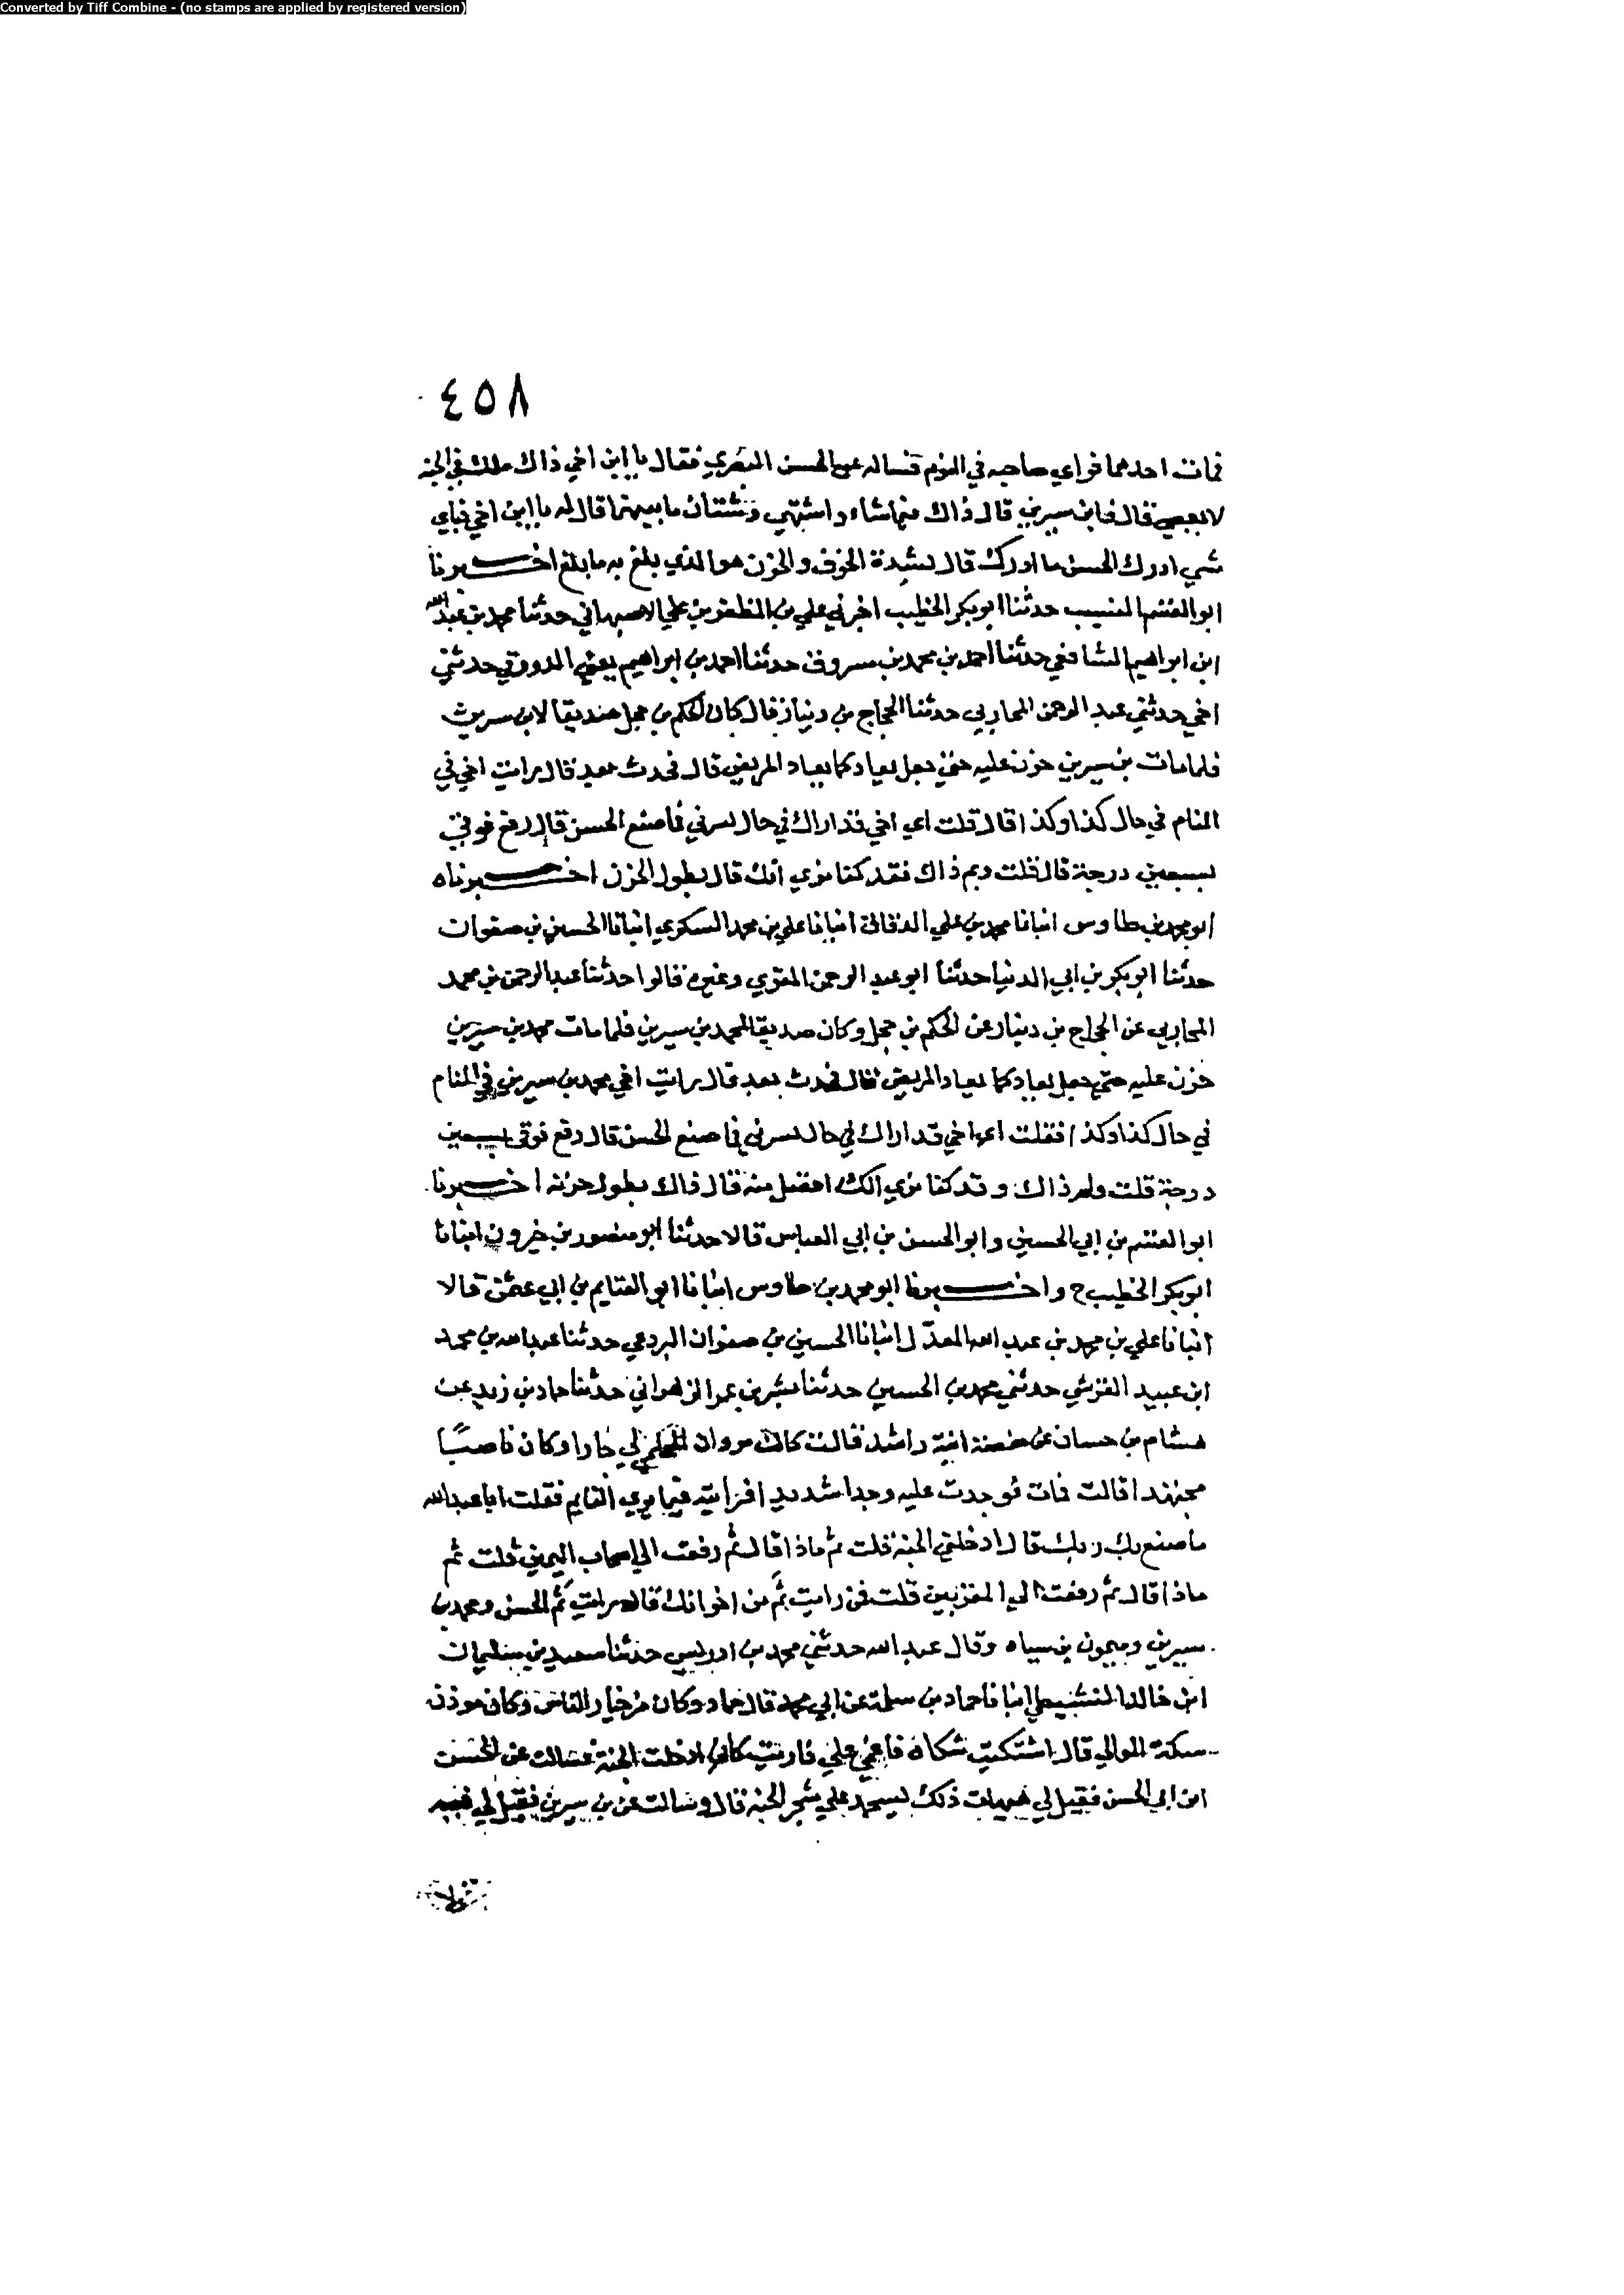 Converted by Tiff Combine - (no stamps are applied by registered version)
٤٥٨
فمات احدهما فراي صاحبه في النوم فساله عن الحسن البصري فقال يا ابن اخي ذاك ملك في الجنه
لا يعصي قال فابن سيرين قال ذاك فيما شاء واشتهي وشتان ما بينهما قال له يا ابن اخي فباي
شي ادرك الحسن ما ادرك قال بشدة الخوف والحزن هو الذي بلغ به ما بلغ اخبرنا
ابو الغنم المنسيب حدثنا ابو بكر الخطيب اخبرني علي بن المظفر بن علي الاصبهاني حدثنا محمد بن عبد الله
ابن ابراهيم الشافعي حدثنا احمد بن محمد بن مسروق حدثنا احمد بن ابراهيم يعني الدورقي حدثني
اخي حدثني عبد الرحمن المحاربي حدثنا الحجاج من دينار قال كان الحكم بن حجل صديقا لابن سيرين
فلما مات بن سيرين حزن عليه حتي جعل يعاد كما يعاد المريض قال فحدث بعد قال رايت اخي في
المنام في حال كذا وكذا قال قلت اي اخي قد اراك في حال يسرني فما صنع الحسن قال رفع فوقي
بسبعين درجة قال قلت وبم ذاك فقد كنا نري انك قال بطول الحزن اخبرناه
ابو محمد بن طاوس انبانا محمد بن علي الدقاق انبانا علي بن محمد السكري انبانا الحسين بن صفوان
حدثنا ابو بكر بن ابي الدنيا حدثنا ابو عبد الرحمن المقري وغيره قالوا حدثنا عبد الرحمن بن محمد
المحاربي عن الحجاج بن دينار عن الحكم بن حجل وكان صديقا لمحمد بن سيرين فلما مات محمد بن سيرين
حزن عليه حتي جعل يعاد كما يعاد المريض قال فحدث بعد قال رايت اخي محمد بن سيرين في المنام
في حال كذا وكذا فقلت اي اخي قد اراك في حال يسرني فما صنع الحسن قال رفع فوقي بسبعين
درجة قلت ولم ذاك وقد كنا نري انك افضل منه قال ذاك بطول حزنه اخبرنا
ابو الغنم بن ابي الحسين وابو الحسن بن ابي العباس قالا حدثنا ابو منصور بن خيرون انبانا
ابو بكر الخطيب ح واخبرنا ابو محمد بن طاوس انبانا ابو الغنايم بن ابي عثمن قالا
انبانا علي بن محمد بن عبد الله المعدل انبانا الحسين بن صفوان البردعي حدثنا عبد الله بن محمد
ابن عبيد القرشي حدثني محمد بن الحسين حدثنا بشر بن عمر الزهراني حدثنا حماد بن زيد عن
هشام بن حسان عن حفصة ابنة راشد قالت كان مروان المحلمي لي جارا وكان ناصبًا
مجتهدا قالت فمات فوجدت عليه وجدا شديدا فرايته فيما يري النايم فقلت ابا عبد الله
ما صنع بك ربك قال ادخلني الجنة قلت ثم ماذا قال ثم رفعت الي اصحاب اليمين قلت ثم
ماذا قال ثم رفعت الي المقربين قلت فمن رايت ثم من اخوانك قال رايت ثم الحسن ومحمد بن
سيرين وميمون بن سياه وقال عبد الله حدثني محمد بن ادريس حدثنا سعيد بن سليمان
ابن خالد النشيطي انبانا حماد بن سلمة عن ابي محمد قال حماد وكان من خيار الناس وكان موذن
سكة الموالي قال اشتكيت شكاة فاغمي علي فاريت كاني ادخلت الجنة فسالت عن الحسن
ابن ابي الحسن فقيل لي هيهات ذلك يسجد علي شجر الجنة قال وسالت عن بن سيرين فقيل لي فيه